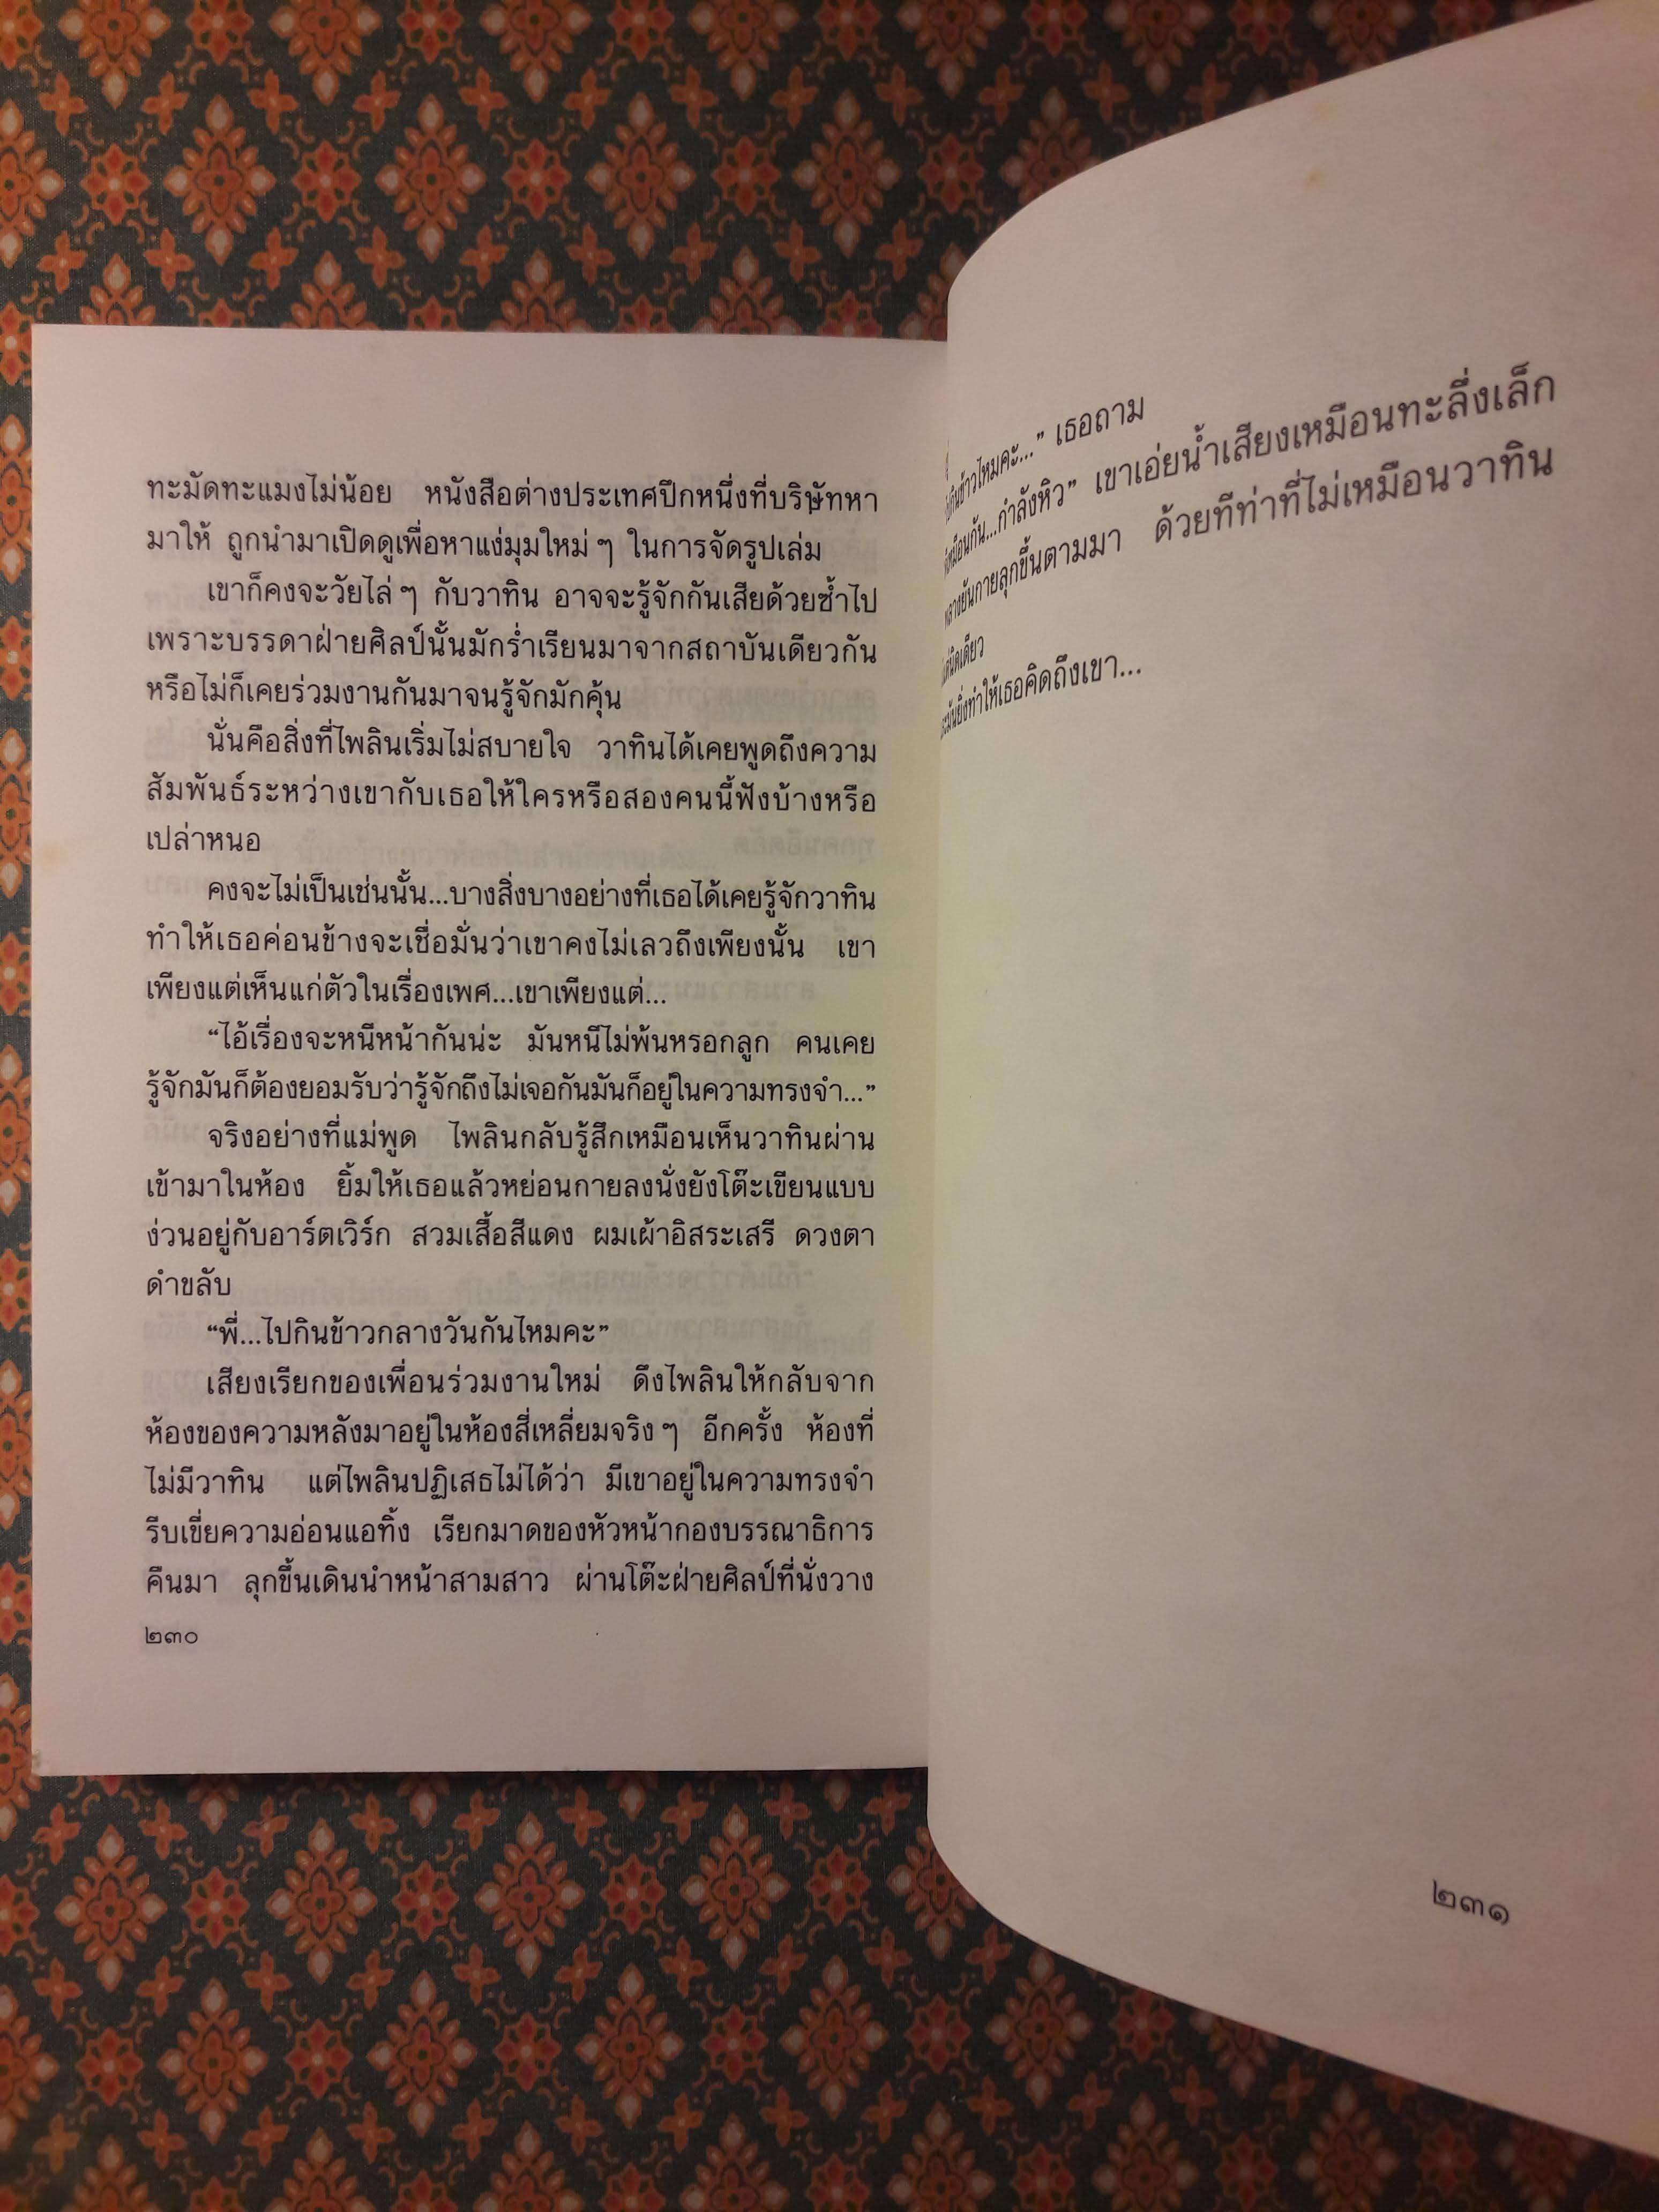 ทะมัดทะแมงไม่น้อย หนังสือต่างประเทศปึกหนึ่งที่บริษัทหา
มาให้ ถูกนำมาเปิดดูเพื่อหาแง่มุมใหม่ ๆ ในการจัดรูปเล่ม
เขาก็คงจะวัยไล่ ๆ กับวาทิน อาจจะรู้จักกันเสียด้วยซ้ำไป
เพราะบรรดาฝ่ายศิลป์นั้นมักร่ำเรียนมาจากสถาบันเดียวกัน
หรือไม่ก็เคยร่วมงานกันมาจนรู้จักมักคุ้น
นั่นคือสิ่งที่ไพลินเริ่มไม่สบายใจ วาทินได้เคยพูดถึงความ
สัมพันธ์ระหว่างเขากับเธอให้ใครหรือสองคนนี้ฟังบ้างหรือ
เปล่าหนอ
คงจะไม่เป็นเช่นนั้น...บางสิ่งบางอย่างที่เธอได้เคยรู้จักวาทิน
ทำให้เธอค่อนข้างจะเชื่อมั่นว่าเขาคงไม่เลวถึงเพียงนั้น เขา
เพียงแต่เห็นแก่ตัวในเรื่องเพศ...เขาเพียงแต่...
“ไอ้เรื่องจะหนีหน้ากันน่ะ มันหนีไม่พ้นหรอกลูก คนเคย
รู้จักมันก็ต้องยอมรับว่ารู้จักถึงไม่เจอกันมันก็อยู่ในความทรงจำ...”
จริงอย่างที่แม่พูด ไพลินกลับรู้สึกเหมือนเห็นวาทินผ่าน
เข้ามาในห้อง ยิ้มให้เธอแล้วหย่อนกายลงนั่งยังโต๊ะเขียนแบบ
ง่วนอยู่กับอาร์ตเวิร์ก สวมเสื้อสีแดง ผมเผ้าอิสระเสรี ดวงตา
ดำขลับ
“พี่...ไปกินข้าวกลางวันกันไหมคะ”
เสียงเรียกของเพื่อนร่วมงานใหม่ ดึงไพลินให้กลับจาก
ห้องของความหลังมาอยู่ในห้องสี่เหลี่ยมจริง ๆ อีกครั้ง ห้องที่
ไม่มีวาทิน แต่ไพลินปฏิเสธไม่ได้ว่า มีเขาอยู่ในความทรงจำ
รีบเขี่ยความอ่อนแอทิ้ง เรียกมาดของหัวหน้ากองบรรณาธิการ
คืนมา ลุกขึ้นเดินนำหน้าสามสาว ผ่านโต๊ะฝ่ายศิลป์ที่นั่งวาง
๒๓๐
กินข้าวไหมคะ...” เธอถาม
เหมือนกัน...กำลังหิว” เขาเอ่ยน้ำเสียงเหมือนทะลึ่งเล็ก
ยันกายลุกขึ้นตามมา ด้วยทีท่าที่ไม่เหมือนวาทิน
นิดเดียว
มันยิ่งทำให้เธอคิดถึงเขา...
๒๓๑